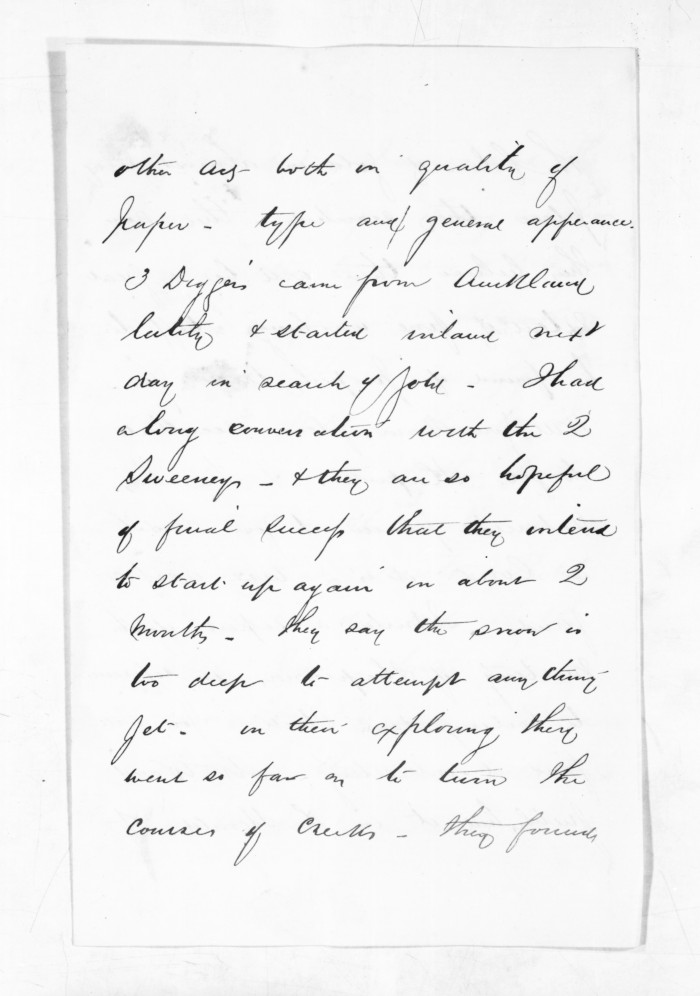 other as both in quality of
paper - type and general apperance.
3 Diggers came from Auckland
lately & started inland next
day in search of Gold - I had
a long conversation with the 2
Sweeneys - & they are so hopeful
of final success that they intend
to start up again in about 2
Months - they say the snow is
too deep to attempt any thing
yet - in their exploring they
went so far as to turn the
courses of creeks - they found